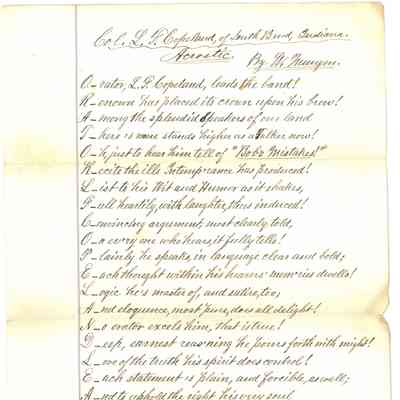 Col. L. P. Copeland, of South Bend, Indiana.
Acrostic.
By W. 
O_rator, L. P. Copeland, leads the band!
R_enown has placed its crown upon his brow!
A_mong the splendid Speakers of our land
T_here is none stands higher as a Talker now!
O_h, just to hear him tell of "Bobo Mistakes!"
R_ecite the ills Intemp'rance has produced!
L_ist to his Wit and Humor as it shakes,
P_ull heartily, with laughter, thus induced!
C_onvincing argument, most clearly told,
O_n ev'ry one who hears, it fully tells!
P_lainly he speaks, in language clear and bold;
E_ach thought within his hearers' mem'ries dwells!
L_ogic he's master of, and satire, too;
A_nd eloquence, most pure, does all delight!
N_o orator excels him, that is true!
D_eep, earnest reas'ning he pours forth with might!
L_ove of the truth his spirit does control!
E_ach statement is plain, and forcible, as well;
A_nd to uphold the right his very soul